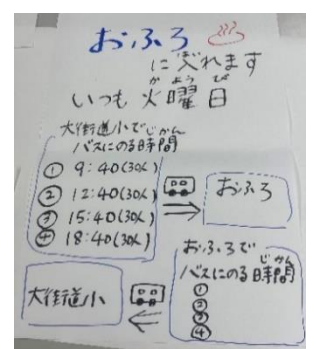 おふろ♨
に入れます
かようび
いつも火曜日
大街道小で
じかん
バスにのる時間
① 9:40(30人)
② 12:40(30人)
③ 15:40(30人)
④ 18:40(30人)
おふろ
おふろで
じかん
バスにのる時間
①
②
③
④
大街道小